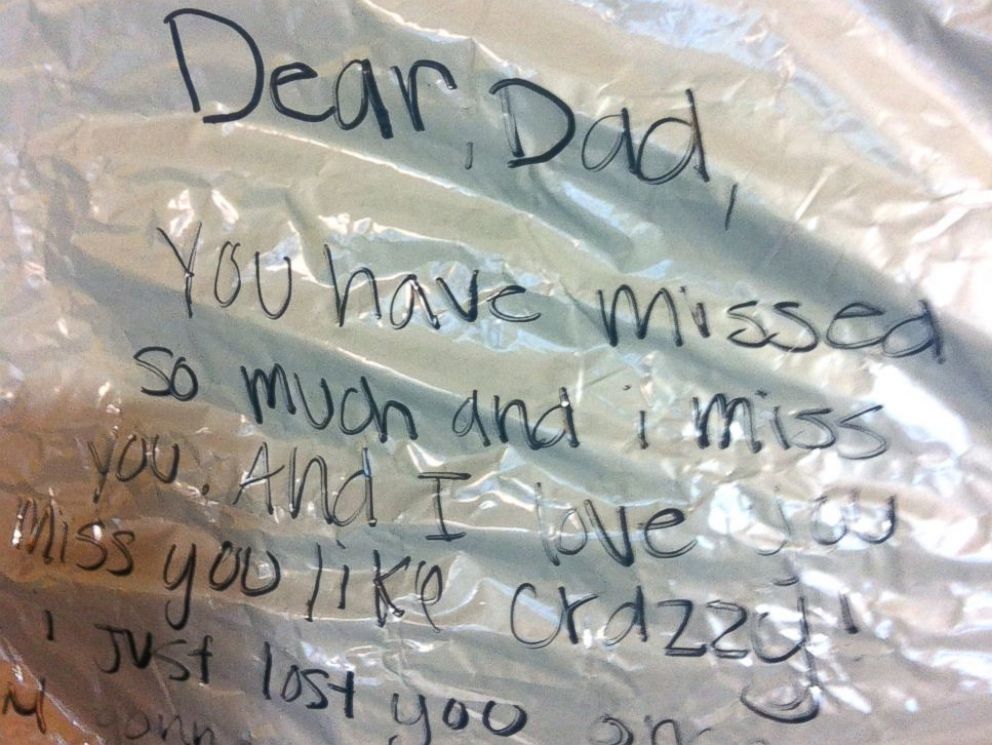 Dear, Dad,
You have missed
so much and i miss
you. And I love you
miss you like crazzy!
i just lost you on